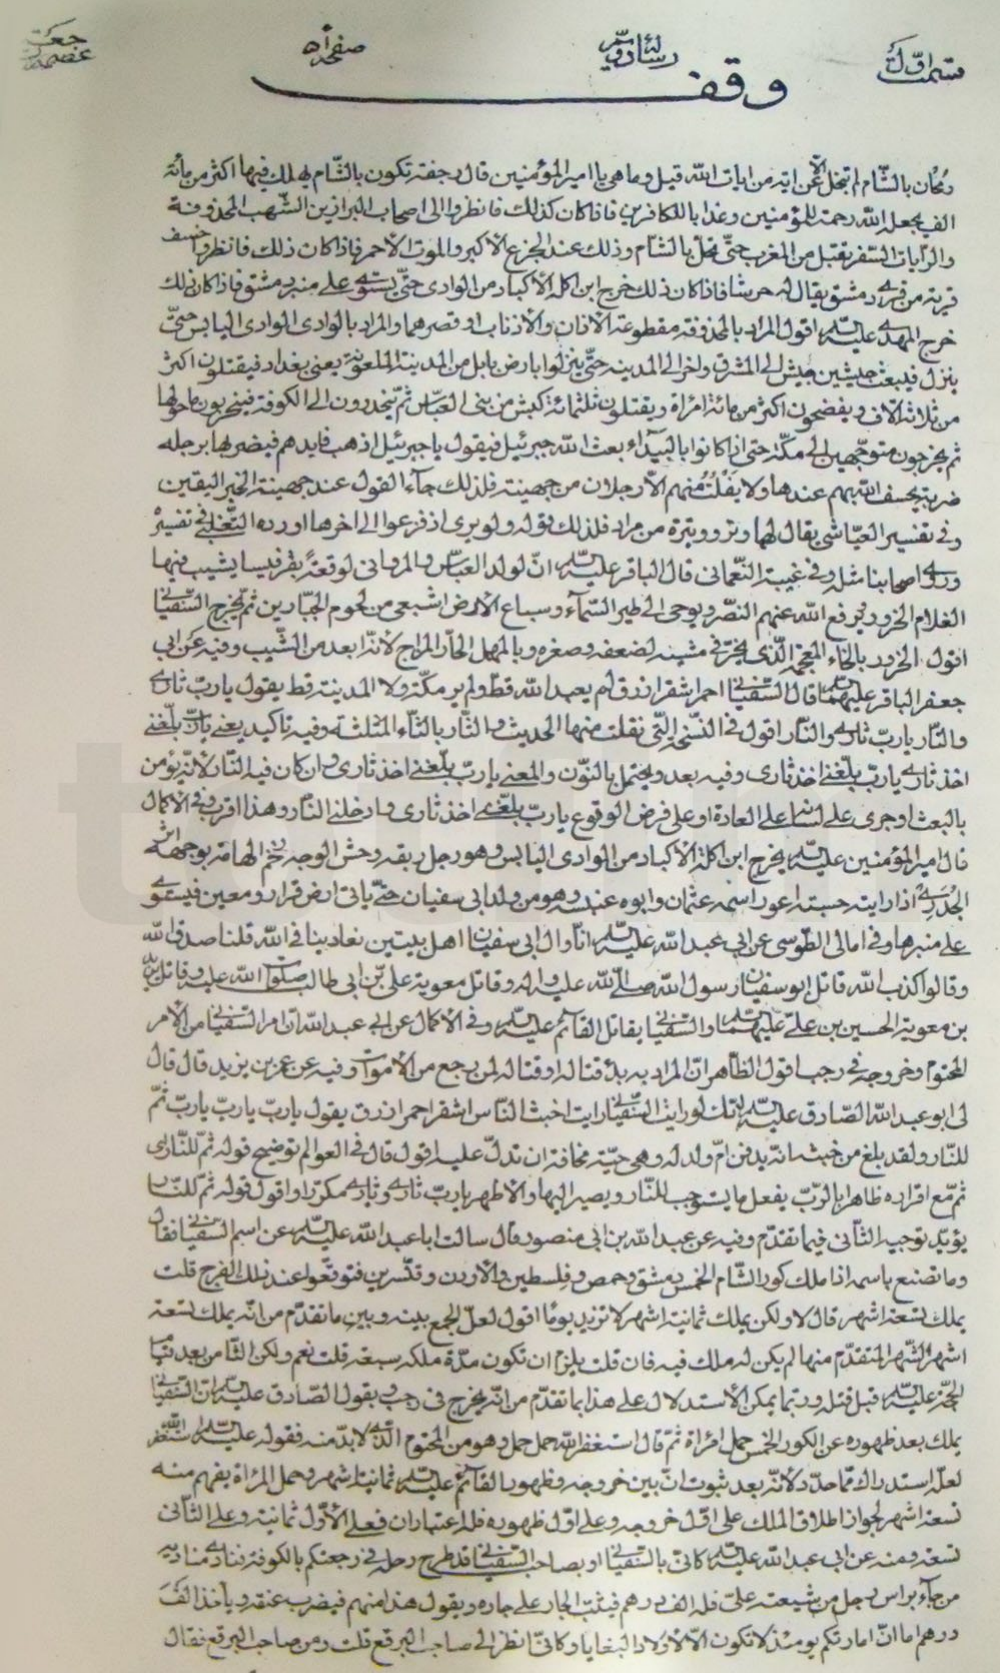 قسمت اول
رساله دویم
صفحه ٥١
رجعت عصمت
وقف
رمحان بالشام لم تنجل الا عن اية من ايات الله قيل وما هى يا امير المؤمنين قال رجفة تكون بالشام يهلك فيها اكثر من مائة
الف يجعل الله رحمة للمؤمنين وعذابا للكافرين فاذا كان كذلك فانظروا الى اصحاب البراذين الشهب المحذوفة
والرايات الصفر تقبل من المغرب حتى تحل بالشام وذلك عند الجزع الاكبر والموت الاحمر فاذا كان ذلك فانظروا خسف
قرية من قرى دمشق يقال له حرشا فاذا كان ذلك خرج ابن اكلة الاكباد من الوادى حتى يستوى على منبر دمشق فاذا كان ذلك
خرج المهدى عليه السلام اقول المراد بالمحذوفة مقطوعة الاذان والاذناب او قصرهما والمراد بالوادى الوادى اليابس حتى
ينزل فيبعث جيشين جيش الى المشرق واخر الى المدينة حتى ينزلوا بارض بابل من المدينة الملعونة يعنى بغداد فيقتلون اكثر
من ثلاثة الاف ويفضحون اكثر من مائة امراة ويقتلون ثلثمائة كبش من بنى العباس ثم ينحدرون الى الكوفة فيخربون ما حولها
ثم يخرجون متوجهين الى مكة حتى اذا كانوا بالبيداء بعث الله جبرئيل فيقول يا جبرئيل اذهب فابدهم فيضربها برجله
ضربة يخسف الله بهم عندها ولا يفلت منهم الا رجلان من جهينة فلذلك جاء القول عند جهينة الخبر اليقين
وفى تفسير العياشى يقال لها وتر ووتيرة من مراد فلذلك قوله ولو يرى اذ فزعوا الى اخرها اورده الثعلبى فى تفسيره
وروى اصحابنا مثله وفى غيبة النعمانى قال الباقر عليه السلام ان لولد العباس والمروانى لوقعة بقرقيسا يشيب فيها
الغلام الخزور ويرفع الله عنهم النصر ويوحى الى طير السماء وسباع الارض اشبعى من لحوم الجبارين ثم يخرج السفيانى
اقول الخزور بالخاء المعجمة الذى يخزر فى مشيته لضعفه وصغره وبالمهمل الحار المزاج لانه ابعد من الشيب وفيه عن ابى
جعفر الباقر عليهما السلام قال السفيانى احمر اشقر ازرق لم يعبد الله قط ولم ير مكة ولا المدينة قط يقول يا رب ثارى
والنار يا رب ثارى والنار اقول فى النسخة التى نقلت منها الحديث والثار بالثاء المثلثة وفيه تاكيد يعنى يا رب بلغنى
اخذ ثارى يا رب بلغنى اخذ ثارى وفيه بعد ويحتمل بالنون والمعنى يا رب بلغنى اخذ ثارى وان كان فيه النار لانه يؤمن
بالبعث او جرى على لسانه على العادة او على فرض الوقوع يا رب بلغنى اخذ ثارى وادخلنى النار وهذا اقرب وفى الاكمال
قال امير المؤمنين عليه السلام يخرج ابن اكلة الاكباد من الوادى اليابس وهو رجل ربعة وحش الوجه ضخم الهامة بوجهه اثر
الجدرى اذا رايته حسبته اعور اسمه عثمان وابوه عنبسه وهو من ولد ابى سفيان حتى ياتى ارض قرار ومعين فيستوى
على منبرها وفى امالى الطوسى عن ابى عبد الله عليه السلام انا وال ابى سفيان اهل بيتين تعادينا فى الله قلنا صدق الله
وقالوا كذب الله قاتل ابو سفيان رسول الله صلى الله عليه واله وقاتل معوية على بن ابى طالب صلوات الله عليه وقاتل يزيد
بن معوية الحسين بن على عليهما السلام والسفيانى يقاتل القائم عليه السلام وفى الاكمال عن ابى عبد الله ان امر السفيانى من الامر
المحتوم وخروجه فى رجب اقول الظاهر ان المراد به بدء قتاله او قتاله لمن رجع من الاموات وفيه عن عمر بن يزيد قال قال
لى ابو عبد الله الصادق عليه السلام انك لو رايت السفيانى رايت اخبث الناس اشقر احمر ازرق يقول يا رب يا رب يا رب ثم
للنار ولقد بلغ من خبثه انه يدفن ام ولد له وهى حية مخافة ان تدل عليه اقول قال فى العوالم توضيح قوله ثم للنار اى
ثم مع اقراره ظاهرا بالرب يفعل ما يستوجب للنار ويصير اليها والاظهر يا رب ثارى وثارى مكررا واقول قوله ثم للنار
يؤيد توجيه الثانى فيما تقدم وفيه عن عبد الله بن ابى منصور قال سالت ابا عبد الله عليه السلام عن اسم السفيانى فقال
وما تصنع باسمه اذا ملك كور الشام الخمس دمشق وحمص وفلسطين والاردن وقنسرين فتوقعوا عند ذلك الفرج قلت
يملك تسعة اشهر قال لا ولكن يملك ثمانية اشهر لا تزيد يوما اقول لعل الجمع بينه وبين ما تقدم من انه يملك تسعة
اشهر الشهر المتقدم منها لم يكن له ملك فيه فان قلت يلزم ان تكون مدة ملكه سبعة قلت نعم ولكن الثامن بعد قيام
الحجة عليه السلام قبل قتله وربما يمكن الاستدلال على هذا بما تقدم من انه يخرج فى رجب وبقول الصادق عليه السلام ان السفيانى
يملك بعد ظهوره عن الكور الخمس حمل امراة ثم قال استغفر الله حمل جمل وهو من المحتوم الذى لا بد منه فقوله عليه السلام استغفر الله
لعله استدراك مما حدد لانه بعد ثبوت ان بين خروجه وظهور القائم عليه السلام ثمانية اشهر وحمل المراة يفهم منه
تسعة اشهر لجواز اطلاق الملك على اول خروجه وعلى اول ظهوره فله اعتباران فعلى الاول ثمانية وعلى الثانى
تسعة ومنه عن ابى عبد الله عليه السلام كانى بالسفيانى او بصاحب السفيانى قد طرح رحله فى رحبتكم بالكوفة فنادى مناديه
من جاء براس رجل من شيعة على فله الف درهم فيثب الجار على جاره ويقول هذا منهم فيضرب عنقه وياخذ الف
درهم اما ان امارتكم يومئذ لا تكون الا لاولاد البغايا وكانى انظر الى صاحب البرقع قلت ومن صاحب البرقع فقال